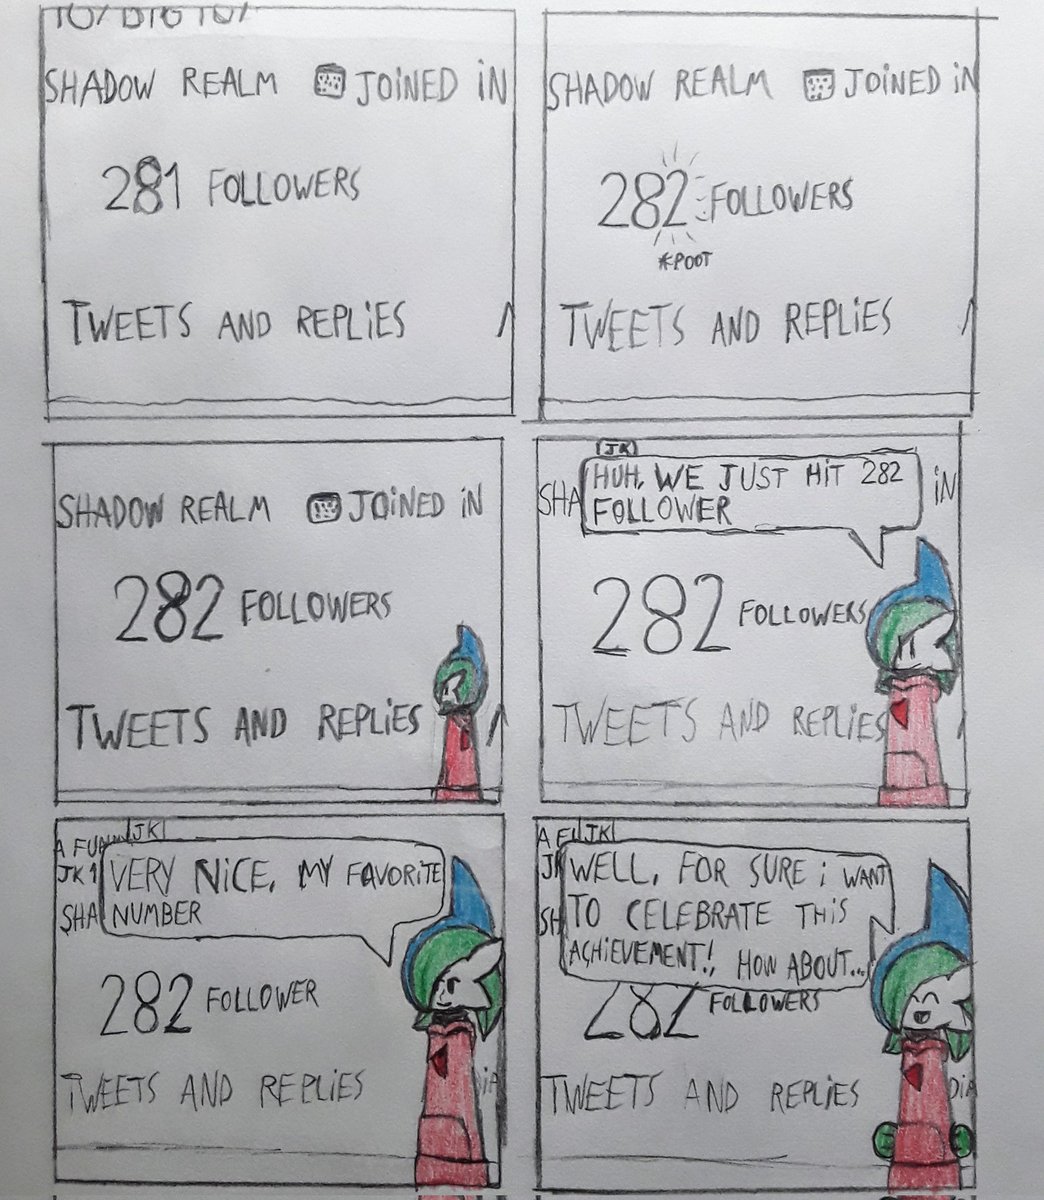 SHADOW REALM JOINED IN
281 FOLLOWERS
TWEETS AND REPLIES
SHADOW REALM JOINED IN
282 FOLLOWERS
*POOT
TWEETS AND REPLIES
SHADOW REALM JOINED IN
282 FOLLOWERS
TWEETS AND REPLIES
JK
HUH, WE JUST HIT 282
FOLLOWER
SHA IN
282 FOLLOWERS
TWEETS AND REPLIES
A FUN JK
JK1 VERY NICE, MY FAVORITE
SHA NUMBER
282 FOLLOWER
TWEETS AND REPLIES
A FU JK
JK WELL, FOR SURE i WANT
SH TO CELEBRATE THIS
ACHIEVEMENT!, HOW ABOUT...
282 FOLLOWERS
TWEETS AND REPLIES DIA